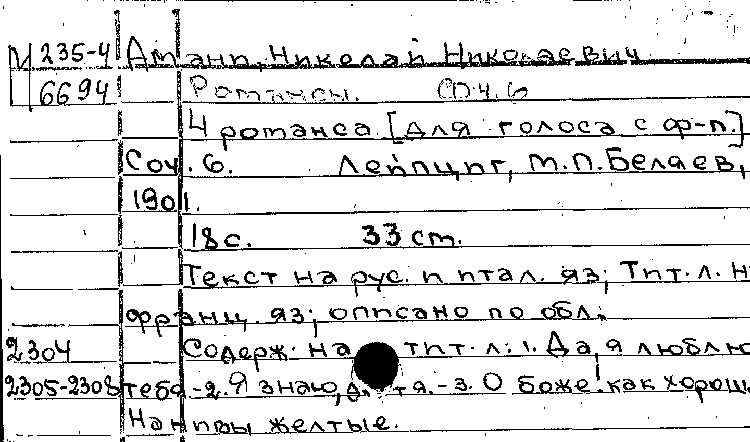 М 235-4 Амани, Николай Николаевич
6694 Романсы. Соч. 6
4 романса [для голоса с ф-п.]
Соч. 6. Лейпциг, М.П. Беляев,
1901.
18 с. 33 см.
Текст на рус. и итал. яз; Тит. л. н
франц. яз; описано по обл.
2304 Содерж. на тит. л: 1. Да, я люблю
2305-2308 тебя -2. Я знаю, -3. О боже! как хорош
желтые.